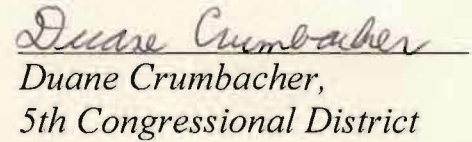 Duane Crumbacher
Duane Crumbacher,
5th Congressional District